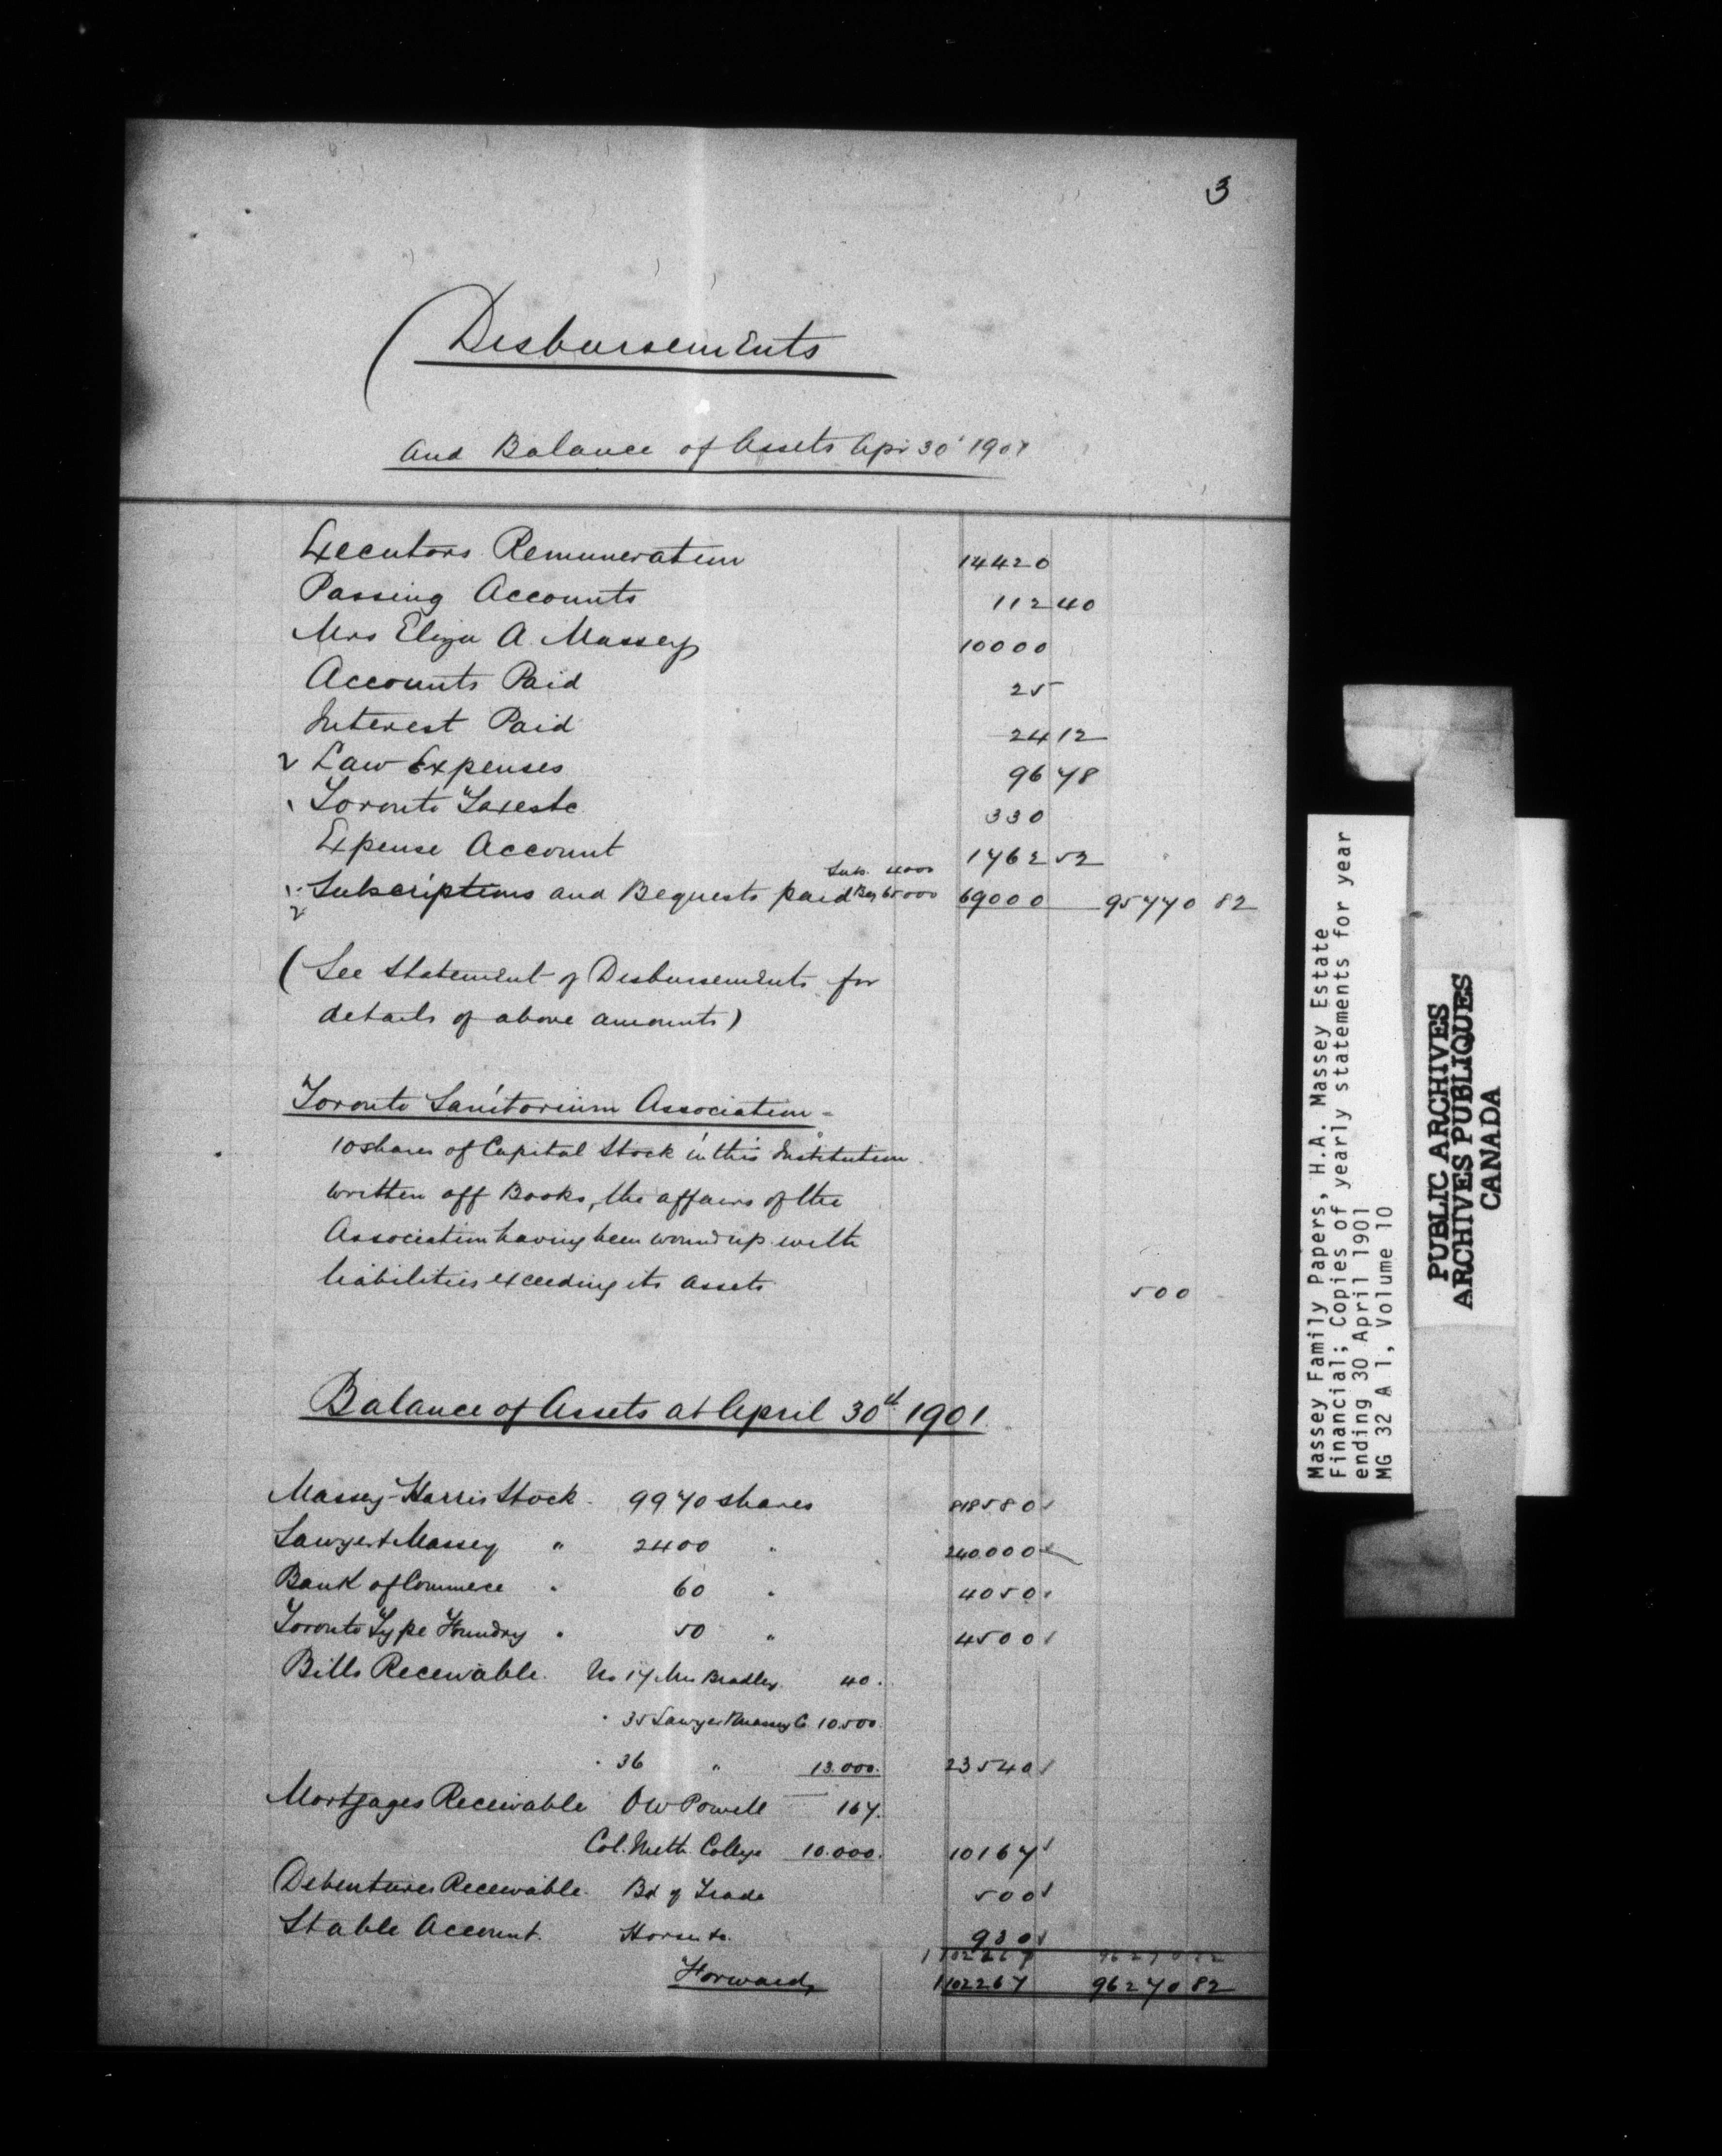 3
Disbursements
and Balance of Assets Apr 30' 1901
Executors Remuneration 14420
Passing Accounts 112 40
Mrs Eliza A. Massey 10000
Accounts Paid 25
Interest Paid 24 12
Law Expenses 96 78
Toronto Taxes &c 330
Expense Account 1762 52
Subs. 4000
Subscriptions and Bequests paid Beq 65000 69000 95770 82
(See Statement of Disbursements for
details of above amounts)
Toronto Sanitorium Association -
10 shares of Capital Stock in this Institution
written off Books, the affairs of the
Association having been wound up with
liabilities exceeding its assets 500
Balance of Assets at April 30th 1901.
Massey-Harris Stock. 9970 shares 818580
Sawyer & Massey " 2400 " 240.000
Bank of Commerce " 60 " 4050
Toronto Type Foundry " 50 " 4500
Bills Receivable. No 17 Mrs Bradley. 40.
" 35 Sawyer & Massey Co 10.500.
" 36 " 13.000. 23540
Mortgages Receivable O W Powell 167.
Col. Meth. College 10.000. 10167
Debentures Receivable. Bd of Trade 500
Stable Account. Horse &c. 930
1102267 96270 82
Forward, 1102267 96270 82
Massey Family Papers, H.A. Massey Estate
Financial; Copies of yearly statements for year
ending 30 April 1901
MG 32 A 1, Volume 10
PUBLIC ARCHIVES
ARCHIVES PUBLIQUES
CANADA